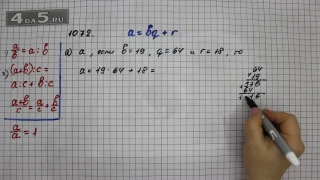 4DA5.RU
1072.
a = bq + r
1) a/b = a : b
2) (a+b) : c =
a : c + b : c
(a+b)/c = a/c + b/c
a/a = 1
а) a, если b = 19, q = 64 и r = 18, то
a = 19 · 64 + 18 =
64
19
576
64